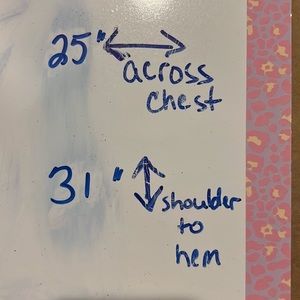 25" ↔
across
chest
31" ↕
shoulder
to
hem